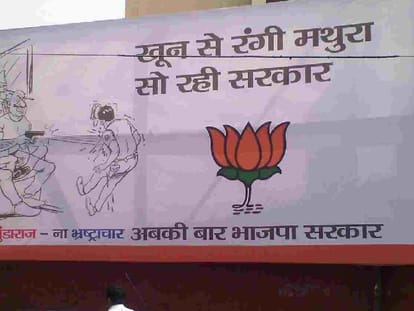 खून से रंगी मथुरा
सो रही सरकार
गुंडाराज - ना भ्रष्ट्राचार अबकी बार भाजपा सरकार